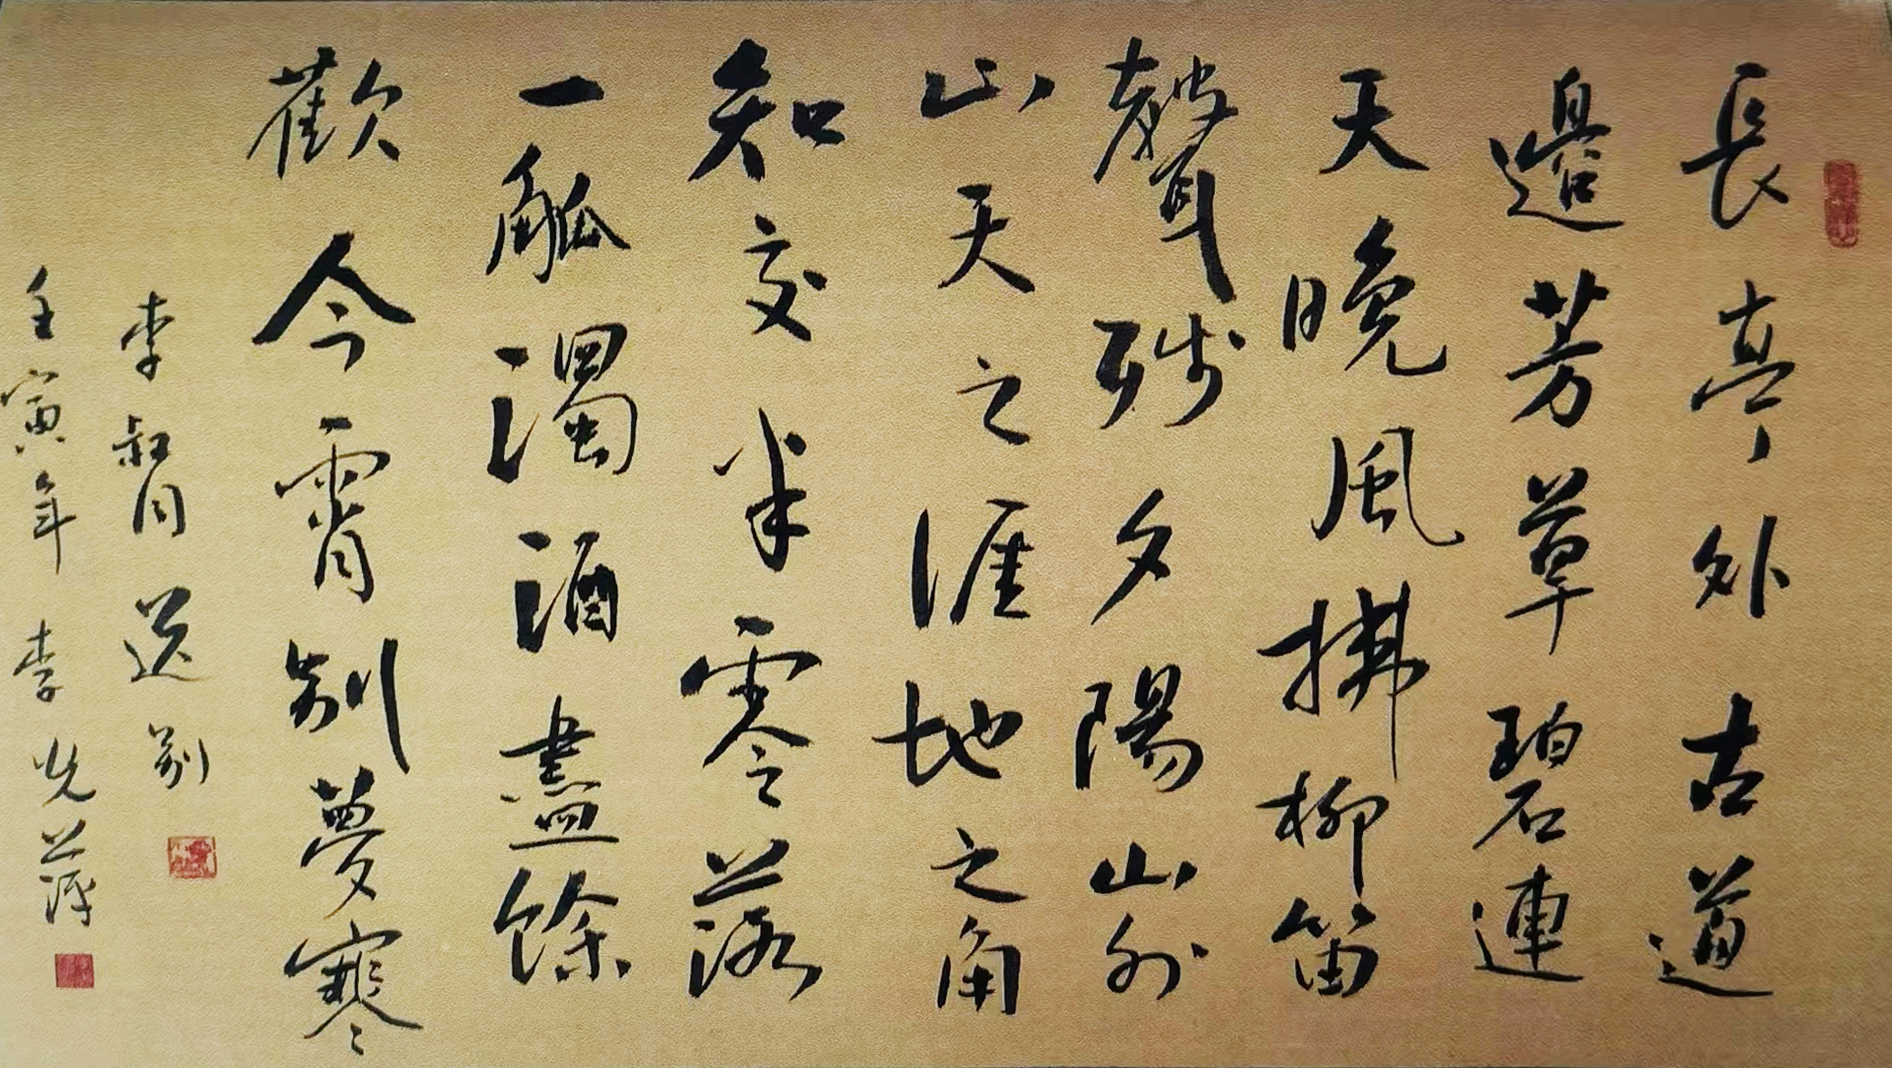 長亭外古道
邊芳草碧連
天晚風拂柳笛
聲殘夕陽山外
山天之涯地之角
知交半零落
一觚濁酒盡餘
歡今宵別夢寒
李叔同送別
壬寅年李萍